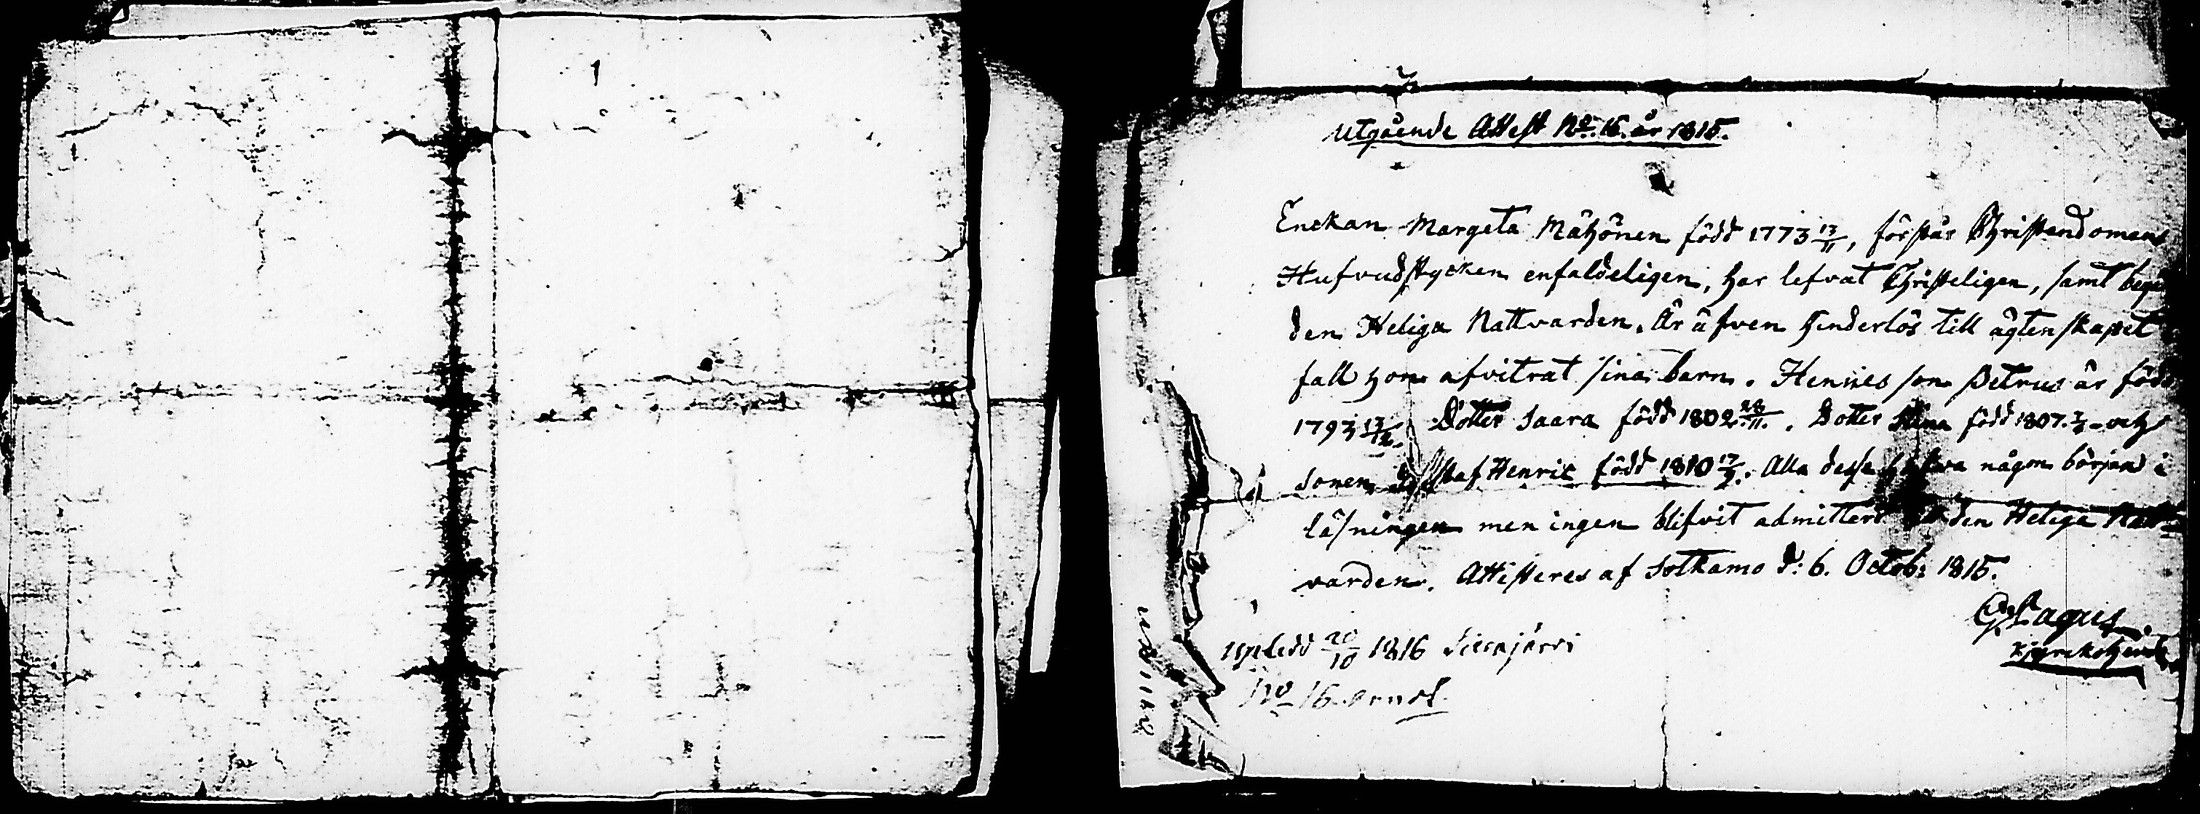 Utgående Attest No. 16. år 1815.
Enckan Margeta Mähönen född 1773 13/11, förstår Christendomens
Hufvudstycken enfaldeligen, har lefvat Christeligen, samt
den Heliga Nattvarden. Är äfven hinderlös till ägtenskapet
fall hon afvitrat sina barn. Hennes son Petrus är född
1793 13/12. Dotter Saara född 1802 28/11. Dotter Stina född 1807. och
sonen Henric född 1810 17/7. Alla dessa hafva någon början i
läsningen men ingen blifvit admitterd den Heliga Natt-
varden. Attesteres af Sotkamo d: 6. Octob: 1815.
G. Lagus
Kyrckoherde
Upledd 20/10 1816
No 16.